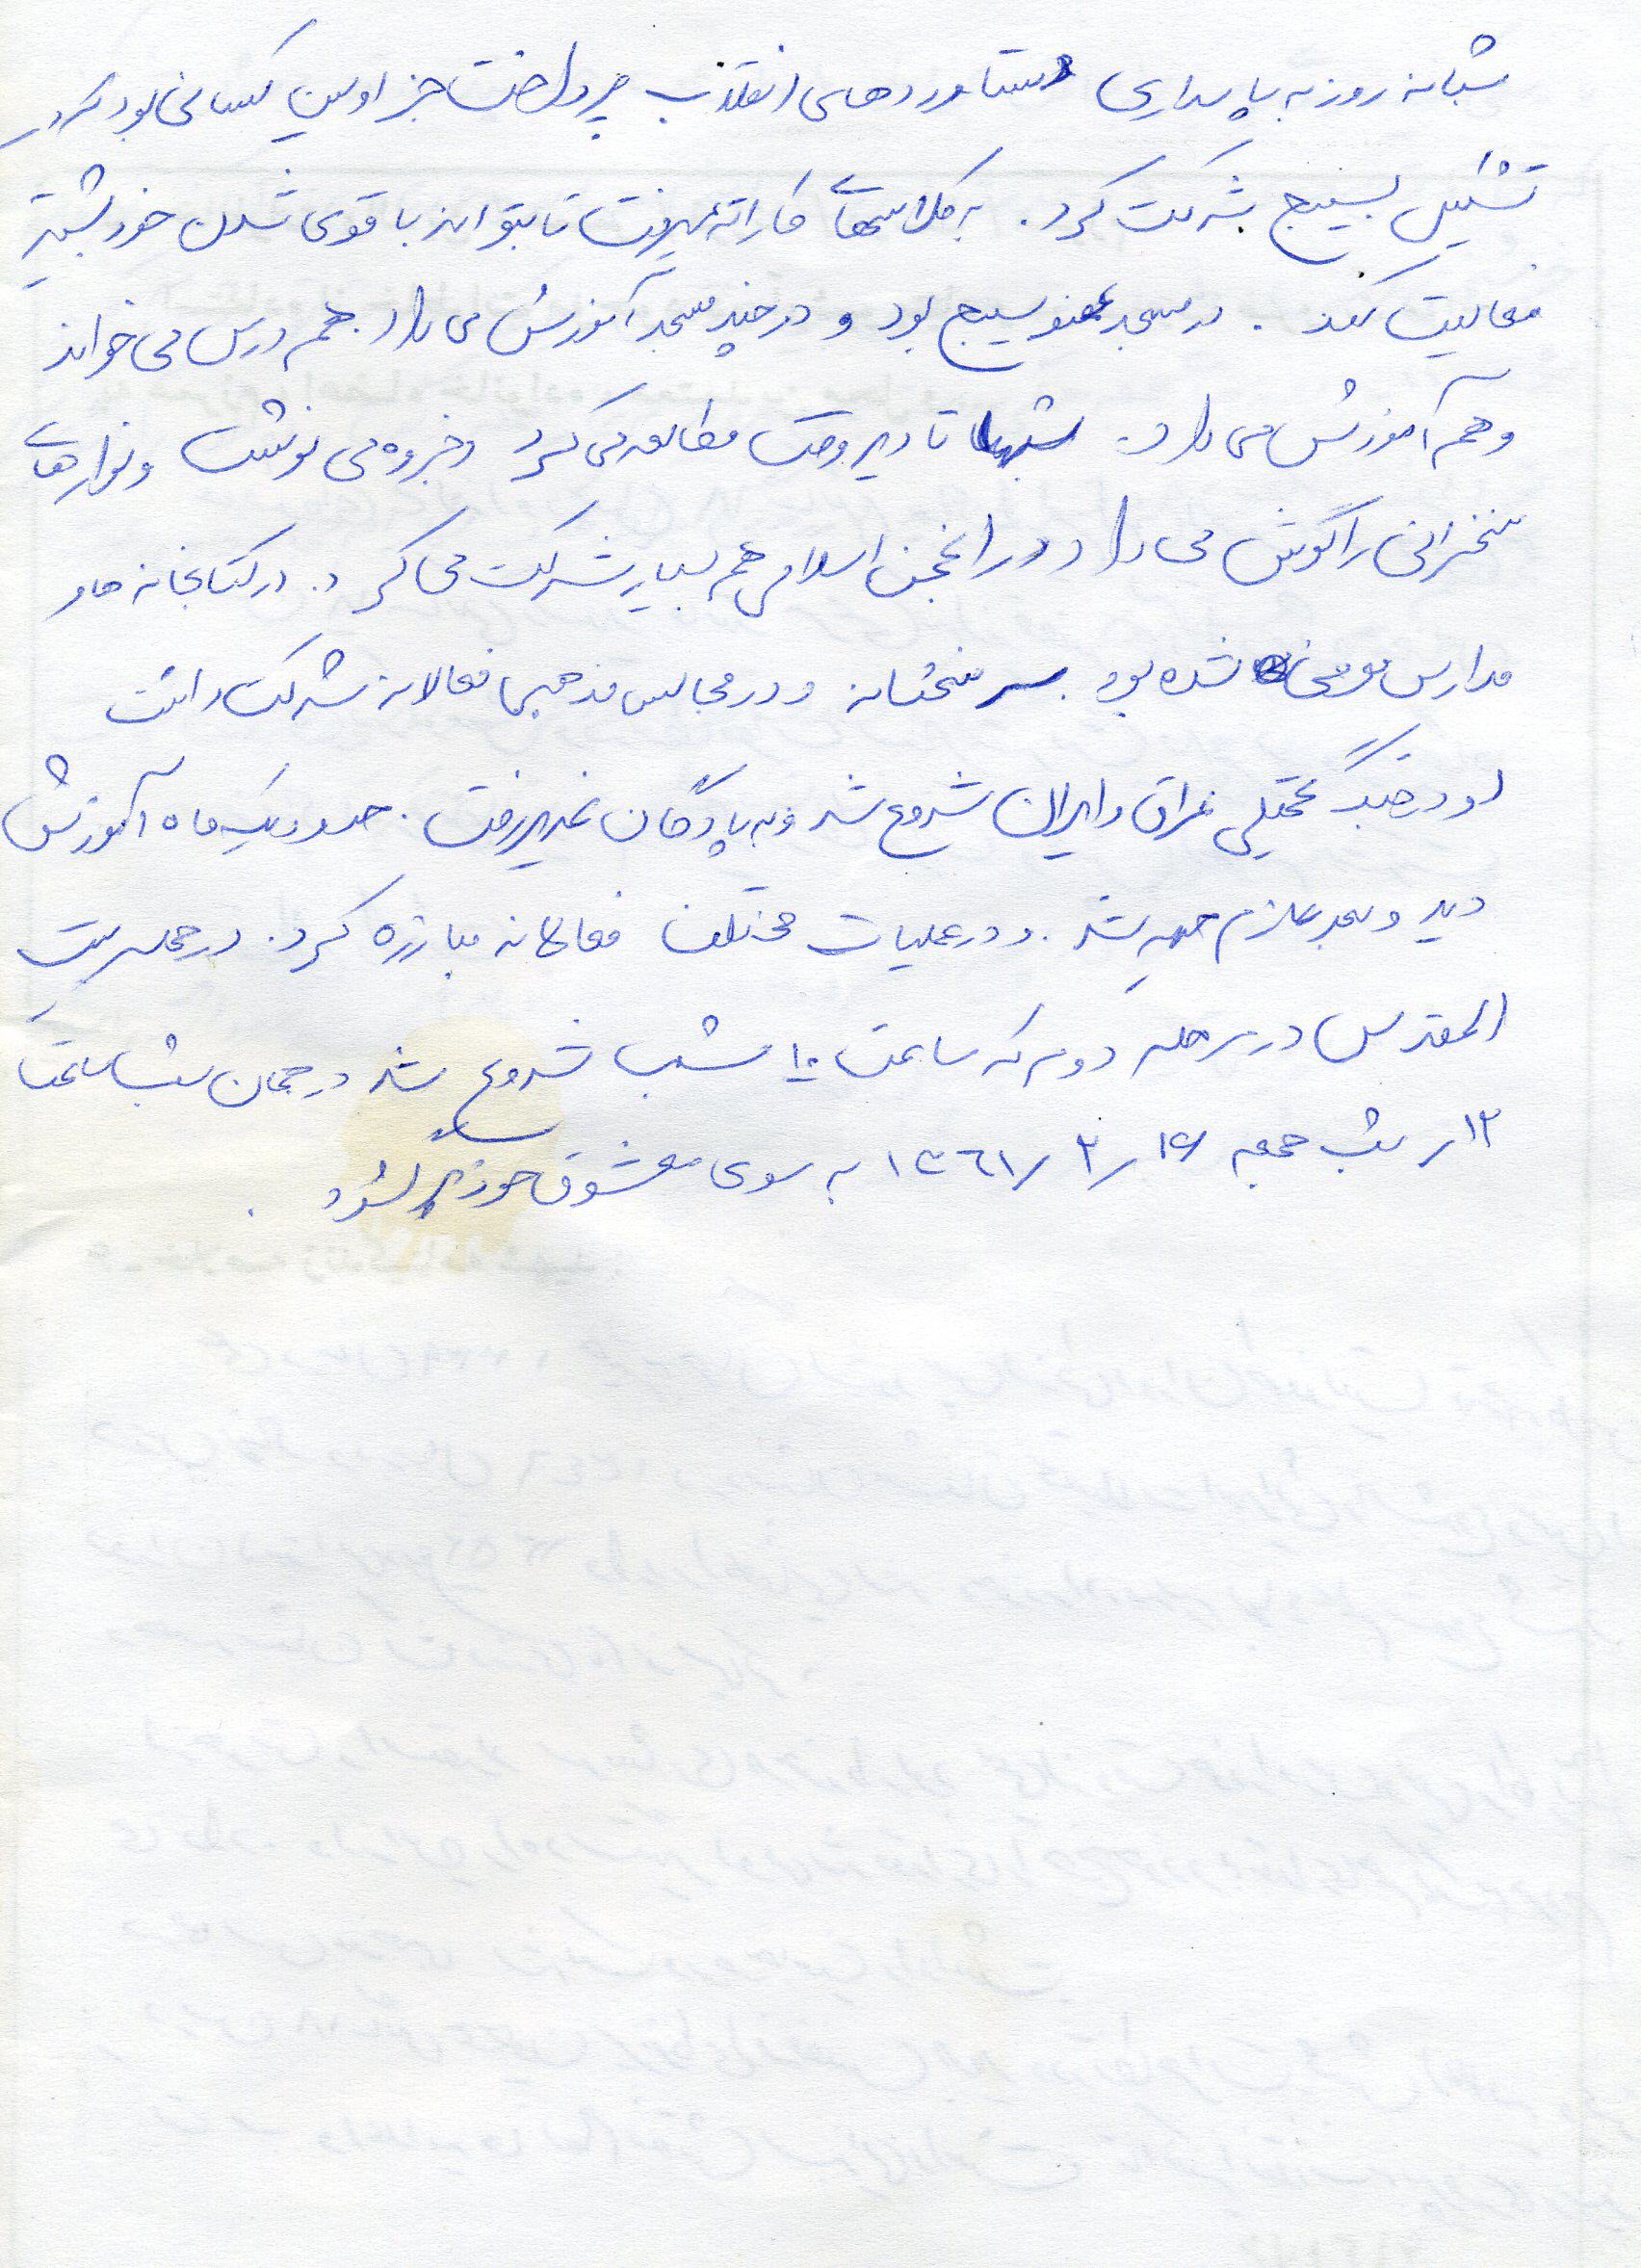 شبانه روز به پاسداری دستاوردهای انقلاب پرداخت جز اولین کسانی بود که در
تشکیل بسیج شرکت کرد . به کلاسهای کاراته میرفت تا بتواند با قوی شدن خود بیشتر
فعالیت کند . در مسجد عضو بسیج بود و در چند مسجد آموزش می داد . هم درس می خواند
و هم آموزش می داد . شبها تا دیر وقت مطالعه می کرد و جزوه می نوشت و نوارهای
سخنرانی را گوش می داد و در انجمن اسلامی هم بسیار شرکت می کرد . در کتابخانه ها و
مدارس معرفی شده بود . سرسختانه و در مجالس مذهبی فعالانه شرکت داشت
جنگ تحمیلی عراق و ایران شروع شد و به پادگان غدیر رفت . حدود یک ماه آموزش
دید و بعد عازم جبهه شد . و در عملیات مختلف فعالانه مبارزه کرد . در حمله بیت
المقدس در مرحله دوم که ساعت ۱۰ شب شروع شد در همان شب ساعت
۱۲ ر شب جمعه ۱۳۶۱/۲/ به سوی معشوق خود